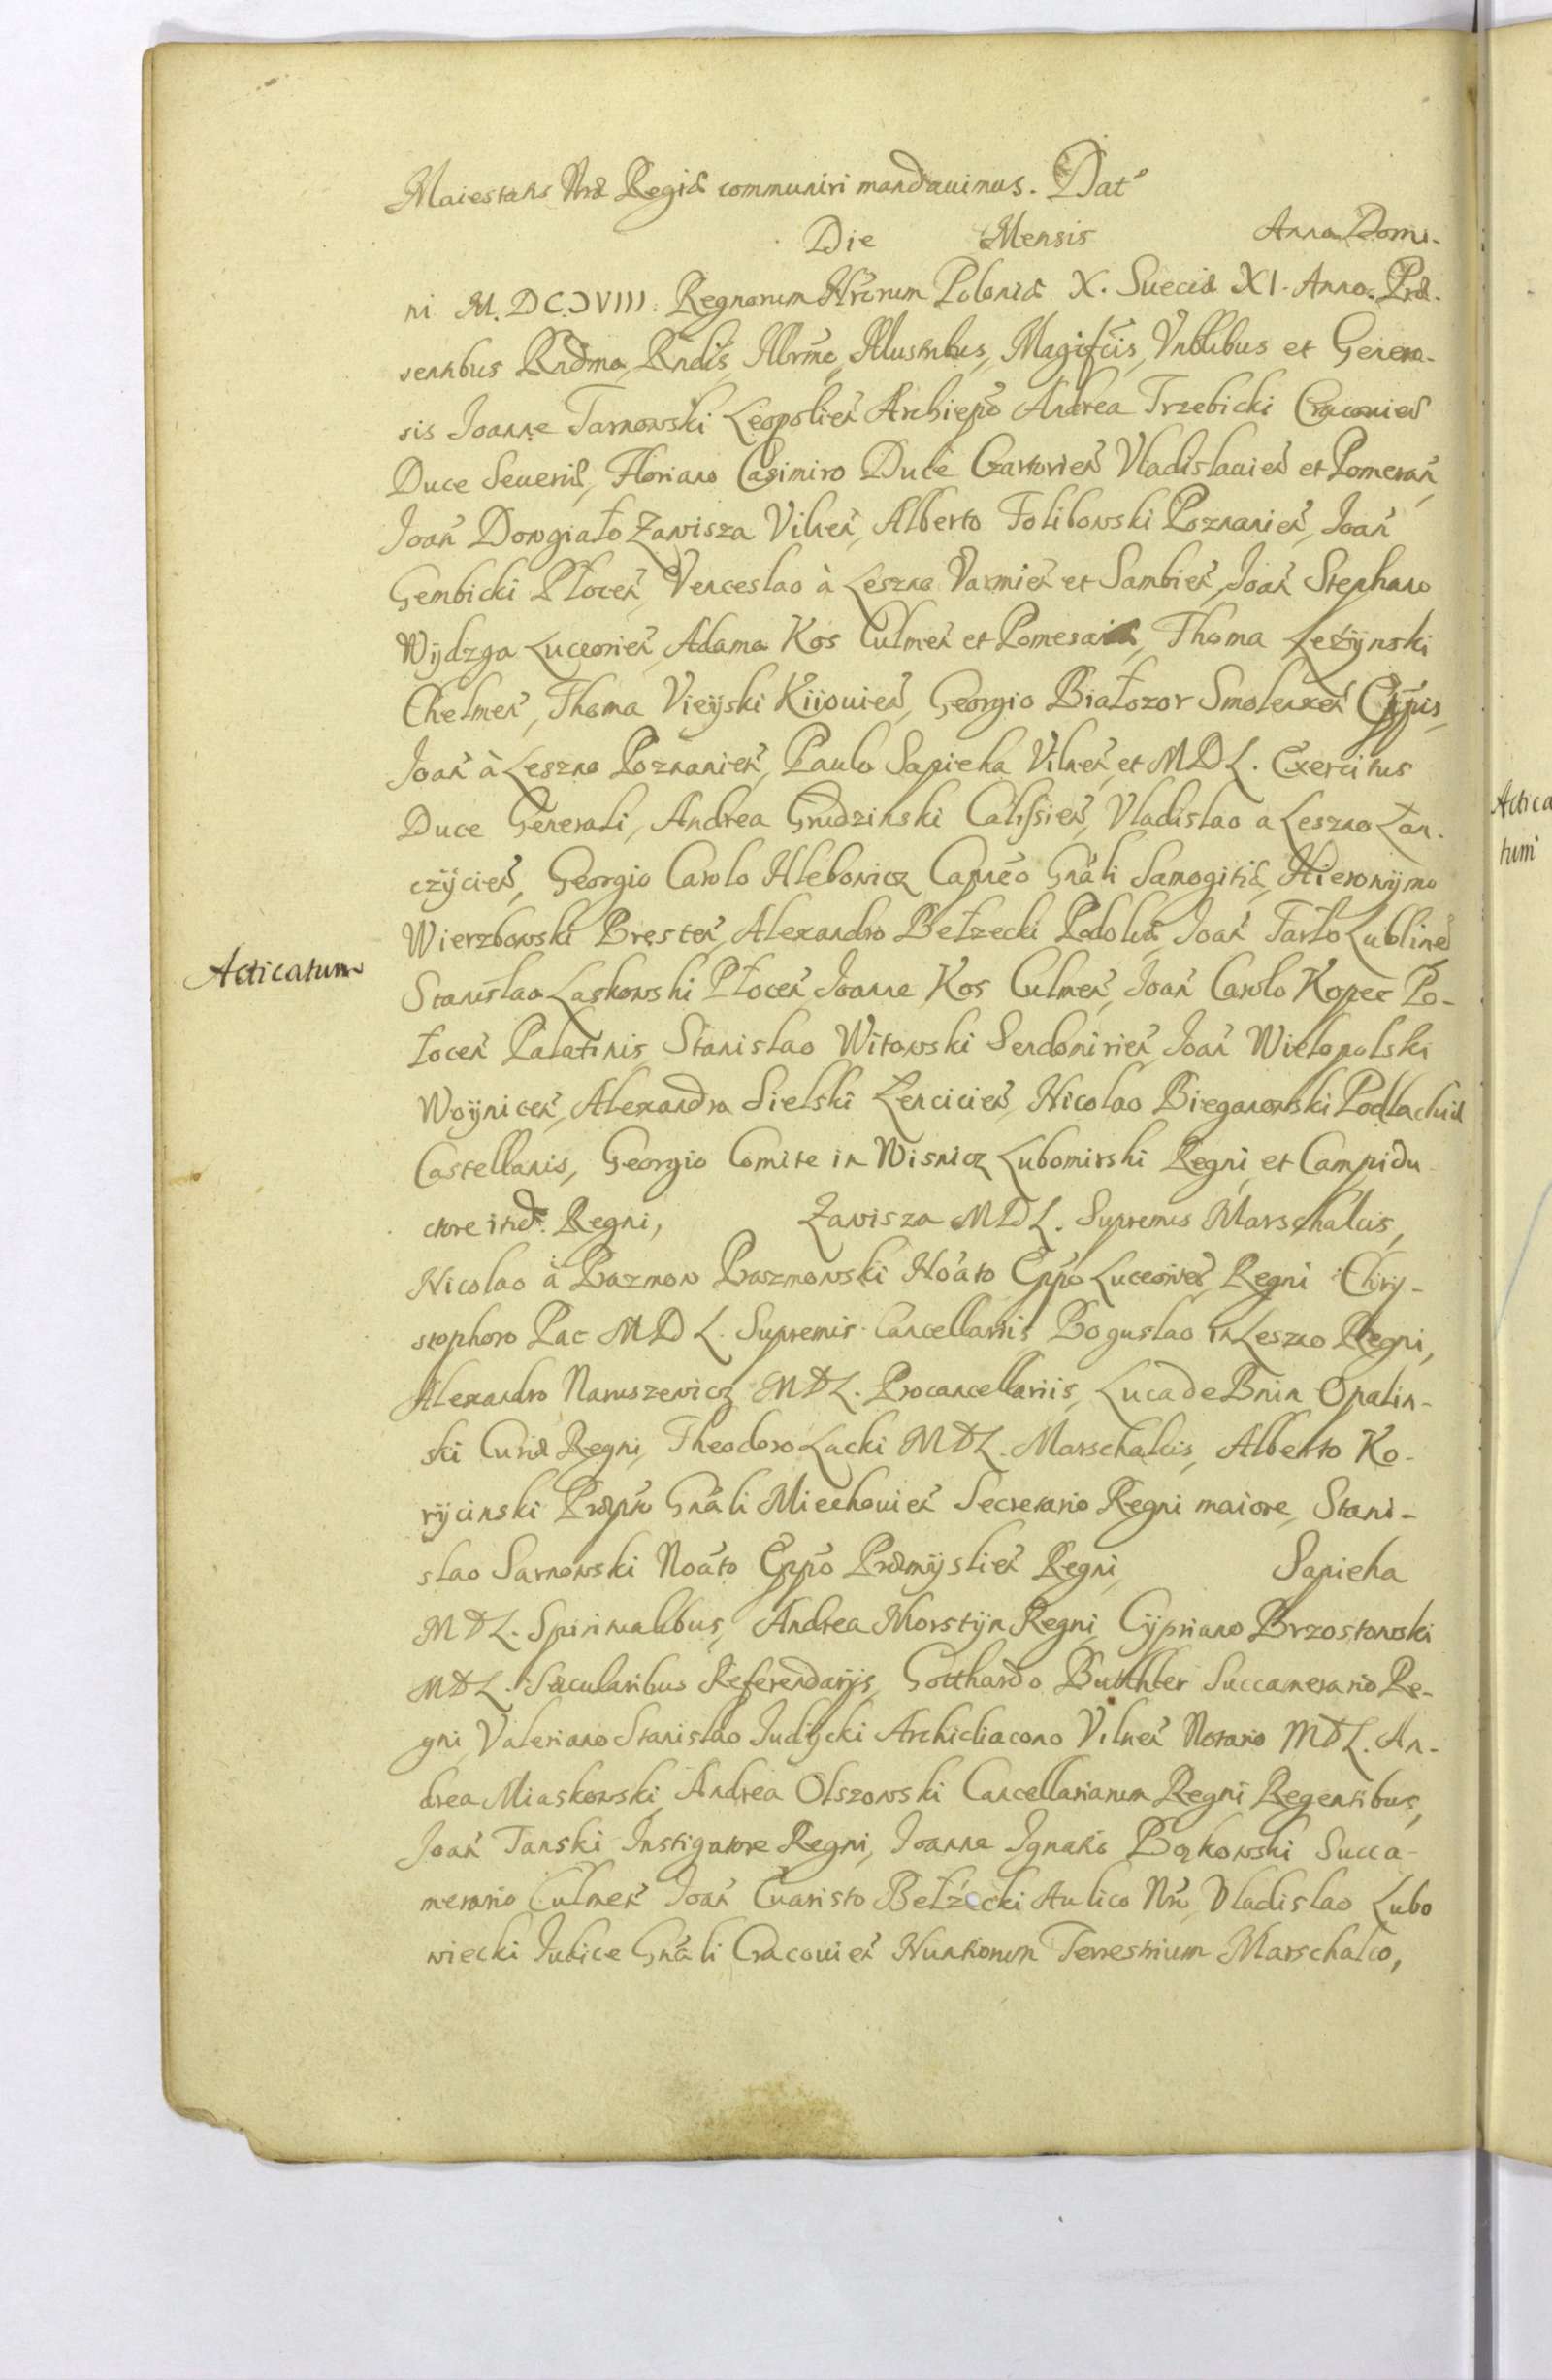 Maiestatis Nræ Regiæ communiri mandauimus. Dat
Die Mensis Anno Domi-
ni M.DC.LVIII. Regnorum Nrorum Poloniæ X. Sueciæ XI. Anno. Præ-
sentibus Rndmo, Rndis, Illrme, Illustribus, Magifcis, Gnblibus et Genero-
sis Joanne Tarnowski Leopolień Archiepo Andrea Trzebicki Cracouień
Duce Seueriæ, Floriano Casimiro Duce Czartorień Vladislauień et Pomerań,
Joań Dowgiało Zawisza Vilneń, Alberto Tolibowski Poznanień, Joań
Gembicki Płoceń, Venceslao à Leszno Varmień et Sambień, Joań Stephano
Wydzga Luceorień, Adamo Kos Culmeń et Pomesaniæ, Thoma Leżynski
Chelmeń, Thoma Vieyski Kiiouień, Georgio Białozor Smolensceń Eppis,
Joań à Leszno Poznanień, Paulo Sapieha Vilneń et MDL. Exercitus
Duce Generali, Andrea Grudzinski Calissień, Vladislao a Leszno Łan-
czycień, Georgio Carolo Hlebowicz Capneo Gnali Samogitiæ, Hieronymo
Wierzbowski Bresteń, Alexandro Bełzecki Podoliæ, Joań Tarło Lublineń
Acticatum
Stanislao Laskowski Płoceń Joanne Kos Culmeń, Joań Carolo Kopec Po-
łoceń Palatinis, Stanislao Witowski Sendomirień, Joań Wielopolski
Woyniceń, Alexandro Sielski Lencicień, Nicolao Bieganowski Podlachiæ
Castellanis, Georgio Comite in Wisnicz Lubomirski Regni, et Campidu-
ctore itid. Regni, Zawisza MDL. Supremis Marschalcis,
Nicolao à Prazmow Prazmowski Noato Eppo Luceorień, Regni Chry-
stophoro Pac MDL. Supremis Cancellariis Boguslao in Leszno Regni,
Alexandro Naruszewicz MDL. Procancellariis, Luca de Bnin Opalin-
ski Curiæ Regni, Theodoro Lacki MDL. Marschalcis, Alberto Ko-
rycinski Præpto Gnali Miechouień Secretario Regni maiore, Stani-
slao Sarnowski Noato Eppo Præmyslień Regni, Sapieha
MDL. Spiritualibus, Andrea Morstyn Regni, Cypriano Brzostowski
MDL. Sæcularibus Referendarijs, Gotthardo Butthler Succamerario Re-
gni, Valeriano Stanislao Judycki Archidiacono Vilneń Notario MDL. An-
drea Miaskowski, Andrea Olszowski Cancellariarum Regni Regentibus,
Joań Tanski Instigatore Regni, Joanne Ignatio Bąkowski Succa-
merario Culmeń Joań Euaristo Bełżecki Aulico Nro, Vladislao Lubo
wiecki Judice Gnali Cracouień Nuntiorum Terrestrium Marschalco,
Actica
tum